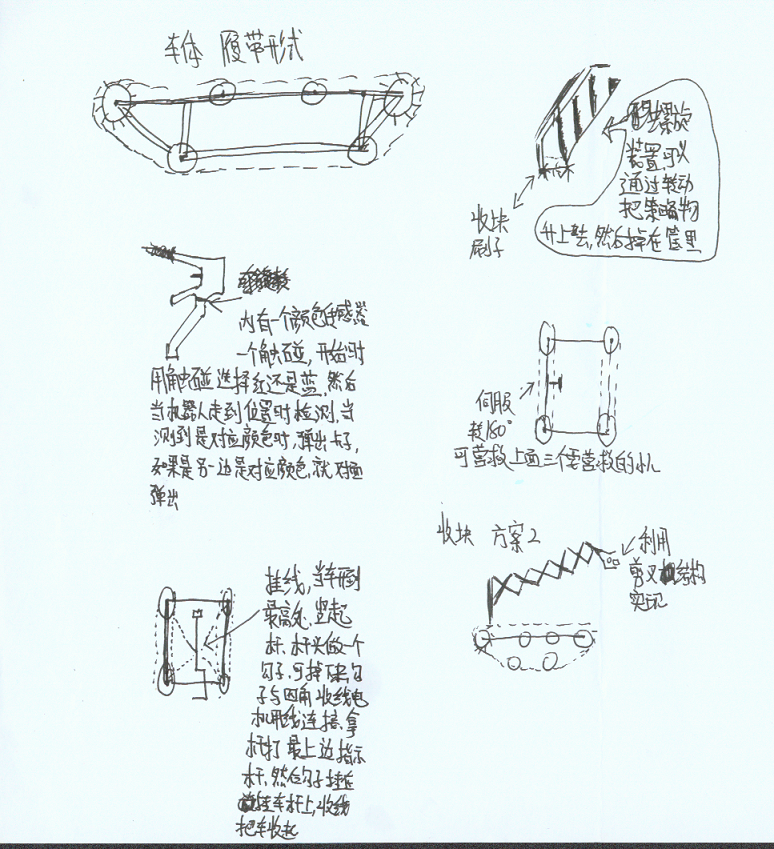 车体 履带形式
螺旋
装置可以
通过转动
把策略物
升上去,然后掉在筐里
收块
刷子
内有一个颜色传感器
一个触碰,开始时
用触碰选择红还是蓝,然后
当机器人走到位置时检测,当
测到是对应颜色时,弹出卡子,
如果是另一边是对应颜色,就对面
弹出
伺服
转180°
可营救上面三个要营救的小人
收块 方案2
利用
剪叉结构
实现
挂线,当车开到
最高处,竖起
杆,杆头做一个
勾子,可掉下来,勾
子与四角收线电
机用线连接,拿
杆打最上边指示
杆,然后勾子挂在
挂车杆上,收线
把车收起